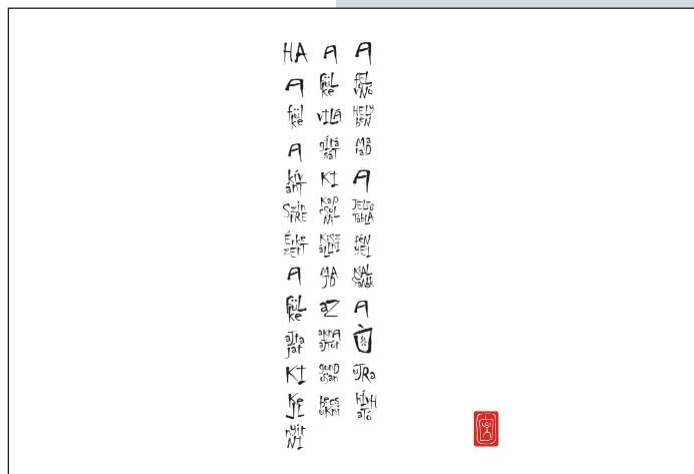 HA A füLke A kívánT SzinTRE ÉrkezETT A füLke ajtaját KI KeLL nyitNI
A füLke vILÁgítását KI KapcsoLNI KiszáLLnI MAJD aZ aknAajtót gonDosan becsukni
A fELvoNó HELybeN MaraD A JELZőTábLA féNyEI KIALszanak A újRa hívHató